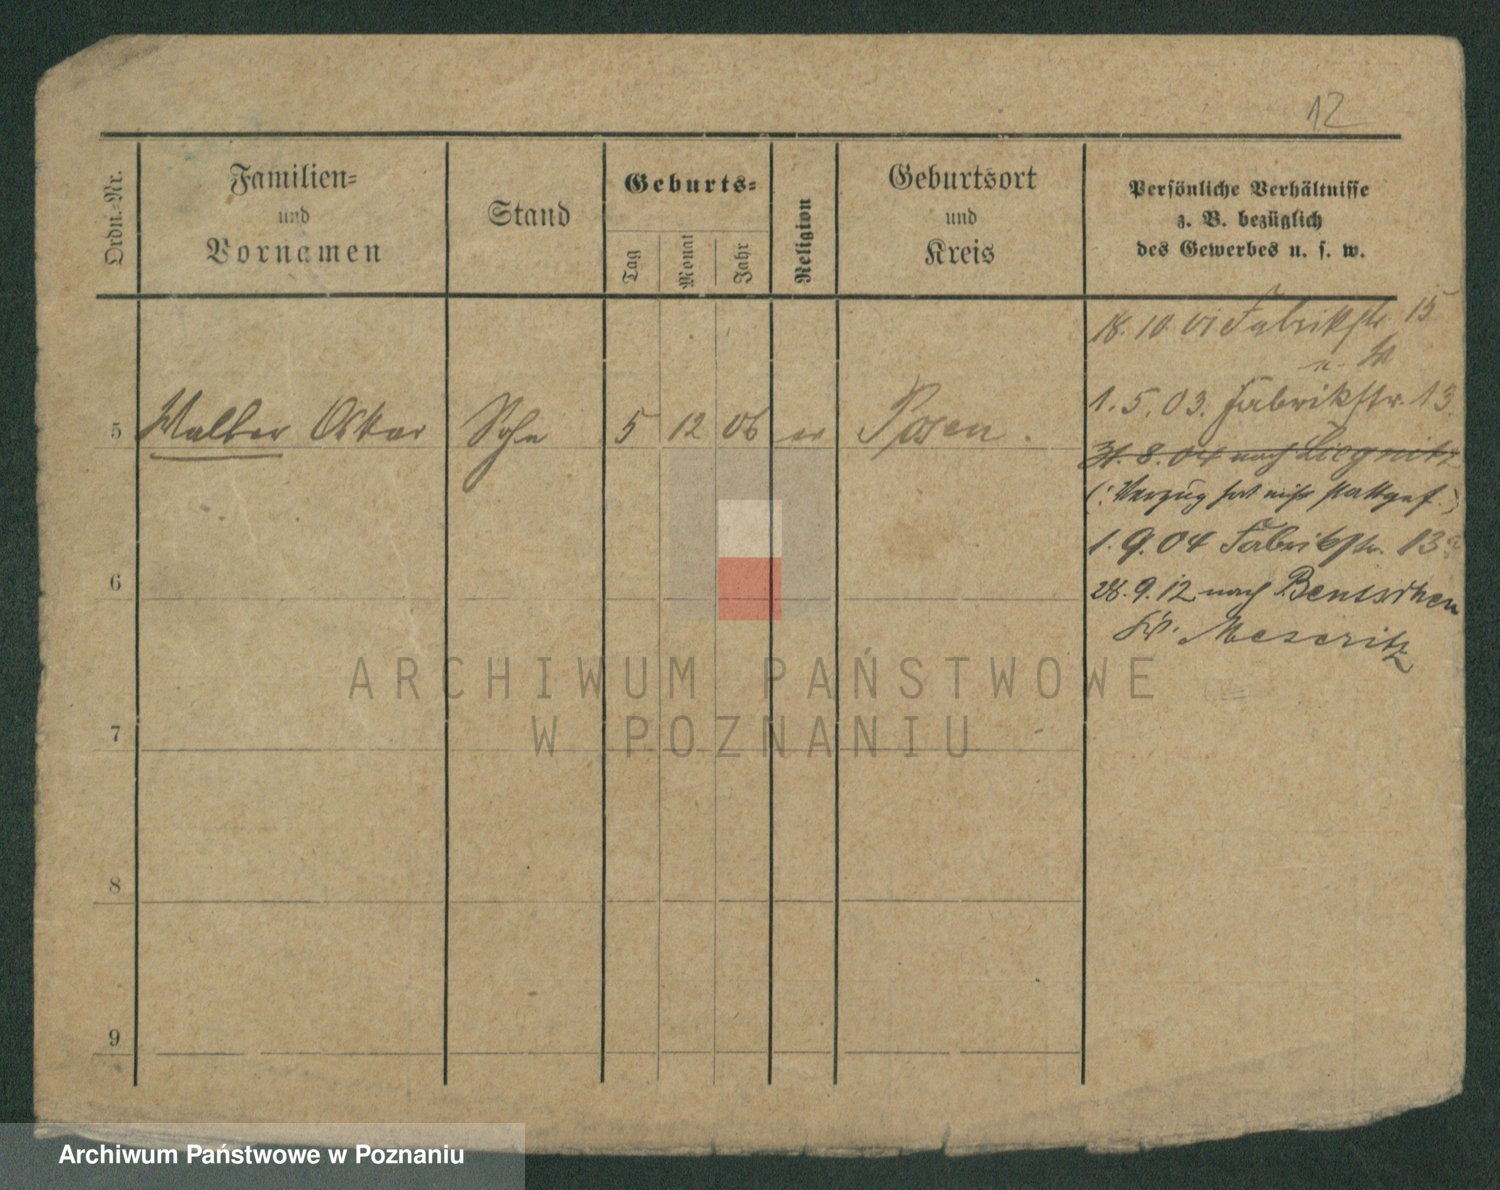 12
Ordn.-Nr.
Familien-
und
Vornamen
Stand
Geburts-
Tag
Monat
Jahr
Religion
Geburtsort
und
Kreis
Persönliche Verhältnisse
z. B. bezüglich
des Gewerbes u. s. w.
18. 10. 01 Fabrikstr. 15
1. 5. 03. Fabrikstr. 13.
5 Walter Oskar Sohn 5 12 06 ev Posen.
31. 8. 04 nach Liegnitz
(: Verzug hat nicht stattgef. :)
1. 9. 04 Fabrikstr. 13
6
28. 9. 12 nach Bentschen
Kr. Meseritz
ARCHIWUM PAŃSTWOWE
W POZNANIU
7
8
9
Archiwum Państwowe w Poznaniu